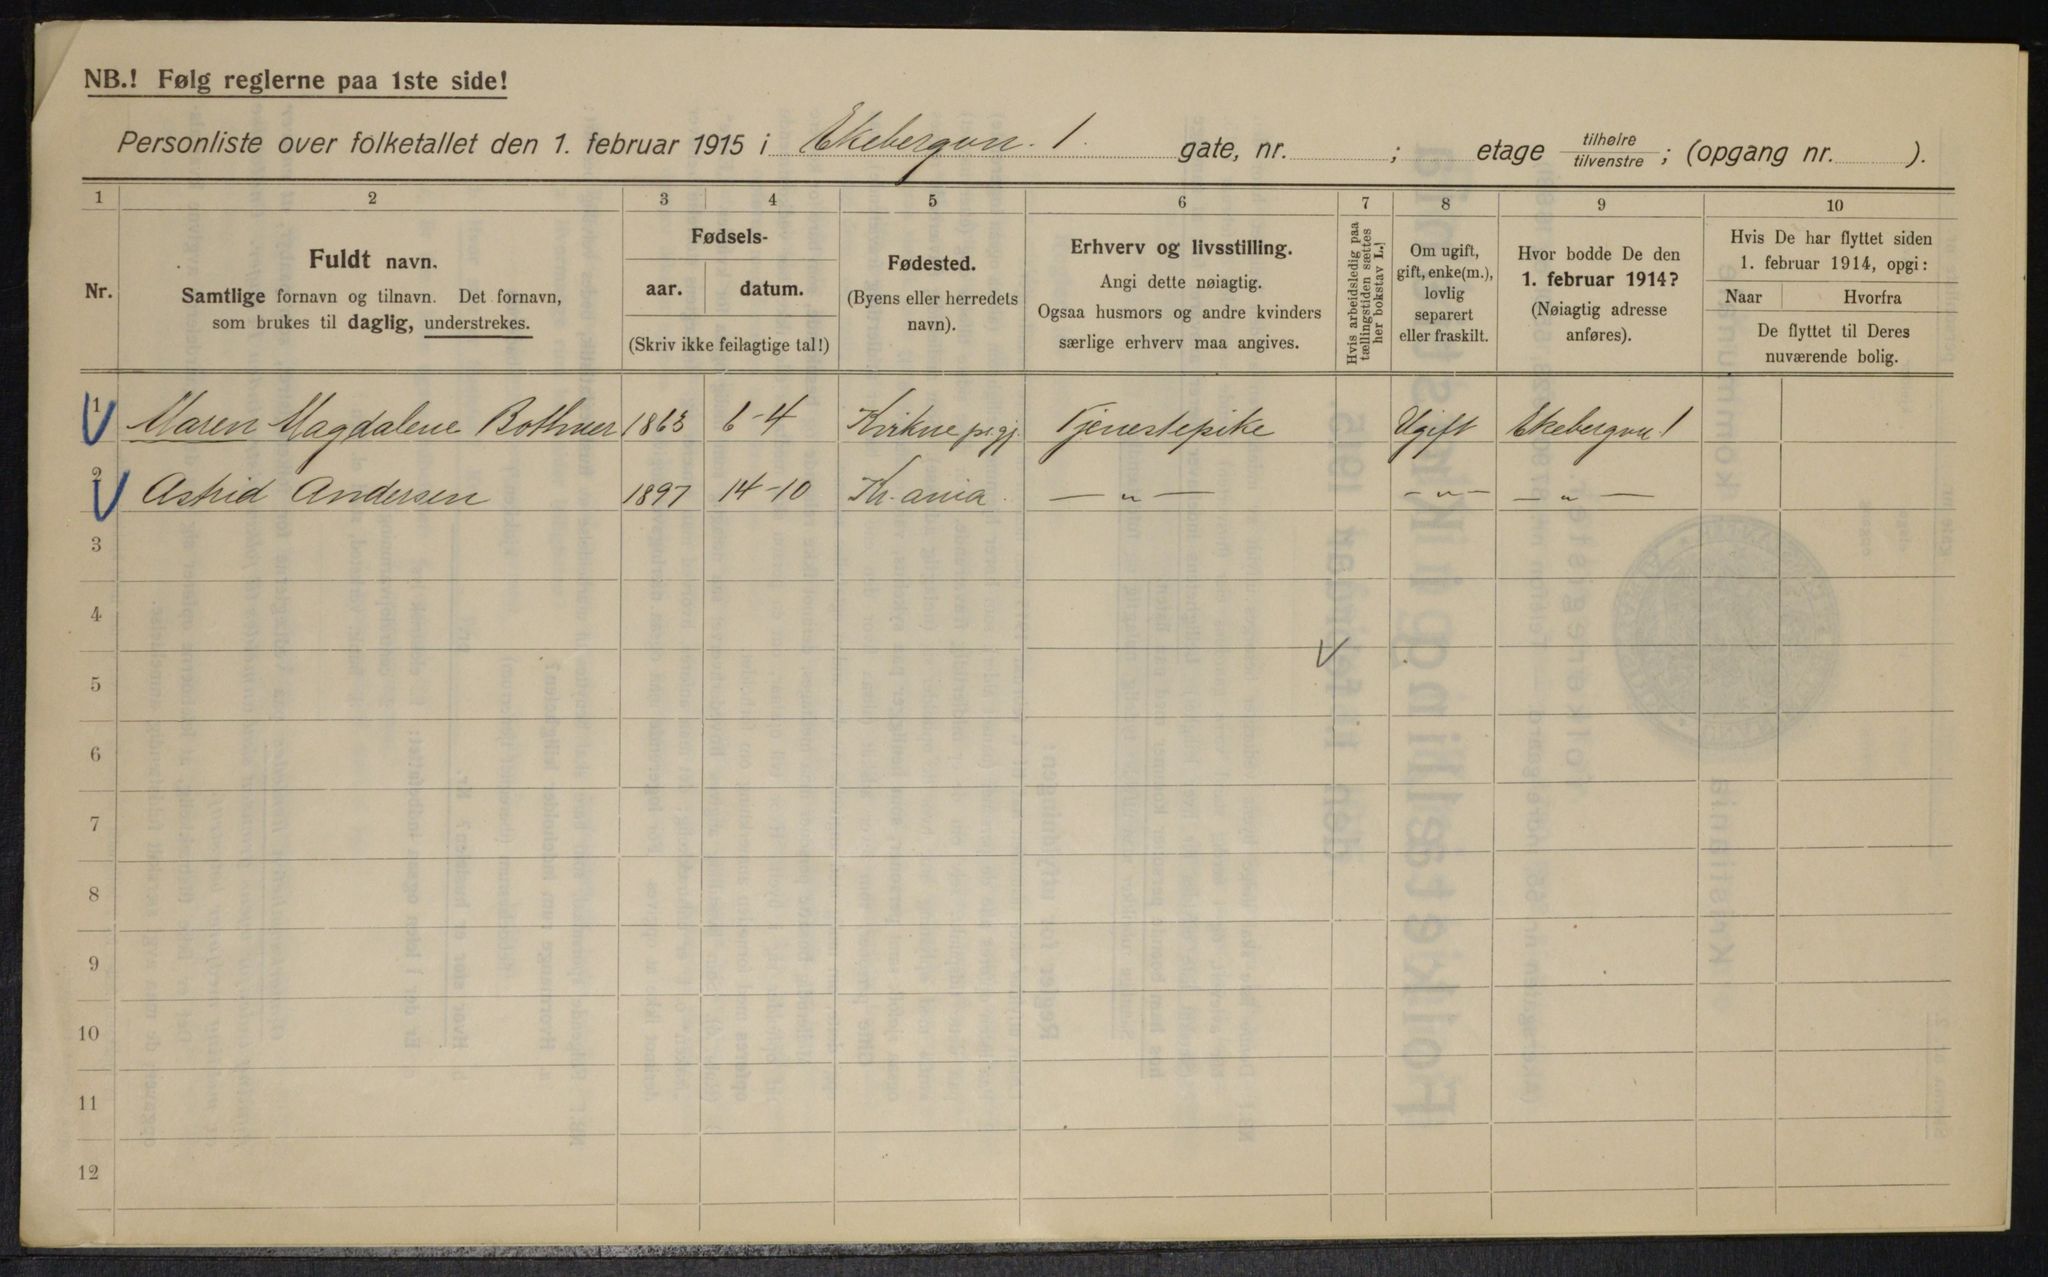 NB.! Følg reglerne paa 1ste side!
Personliste over folketallet den 1. februar 1915 i Ekebergvn. 1. gate, nr. ; etage tilhøire/tilvenstre ; (opgang nr. ).
1 2 3 4 5 6 7 8 9 10
Nr.
Fuldt navn.
Samtlige fornavn og tilnavn. Det fornavn,
som brukes til daglig, understrekes.
Fødsels-
aar. datum.
(Skriv ikke feilagtige tal!)
Fødested.
(Byens eller herredets
navn).
Erhverv og livsstilling.
Angi dette nøiagtig.
Ogsaa husmors og andre kvinders
særlige erhverv maa angives.
Hvis arbeidsledig paa
tællingstiden sættes
her bokstav L.!
Om ugift,
gift, enke(m.),
lovlig
separert
eller fraskilt.
Hvor bodde De den
1. februar 1914?
(Nøiagtig adresse
anføres).
Hvis De har flyttet siden
1. februar 1914, opgi:
Naar Hvorfra
De flyttet til Deres
nuværende bolig.
1 Maren Magdalene Bothner 1863 6-4 Kirkne pr.gj. Tjenestepike Ugift Ekebergvn. 1
2 Astrid Andersen 1897 14-10 Kr.ania. — " — — " — — " —
3
4
5
6
7
8
9
10
11
12